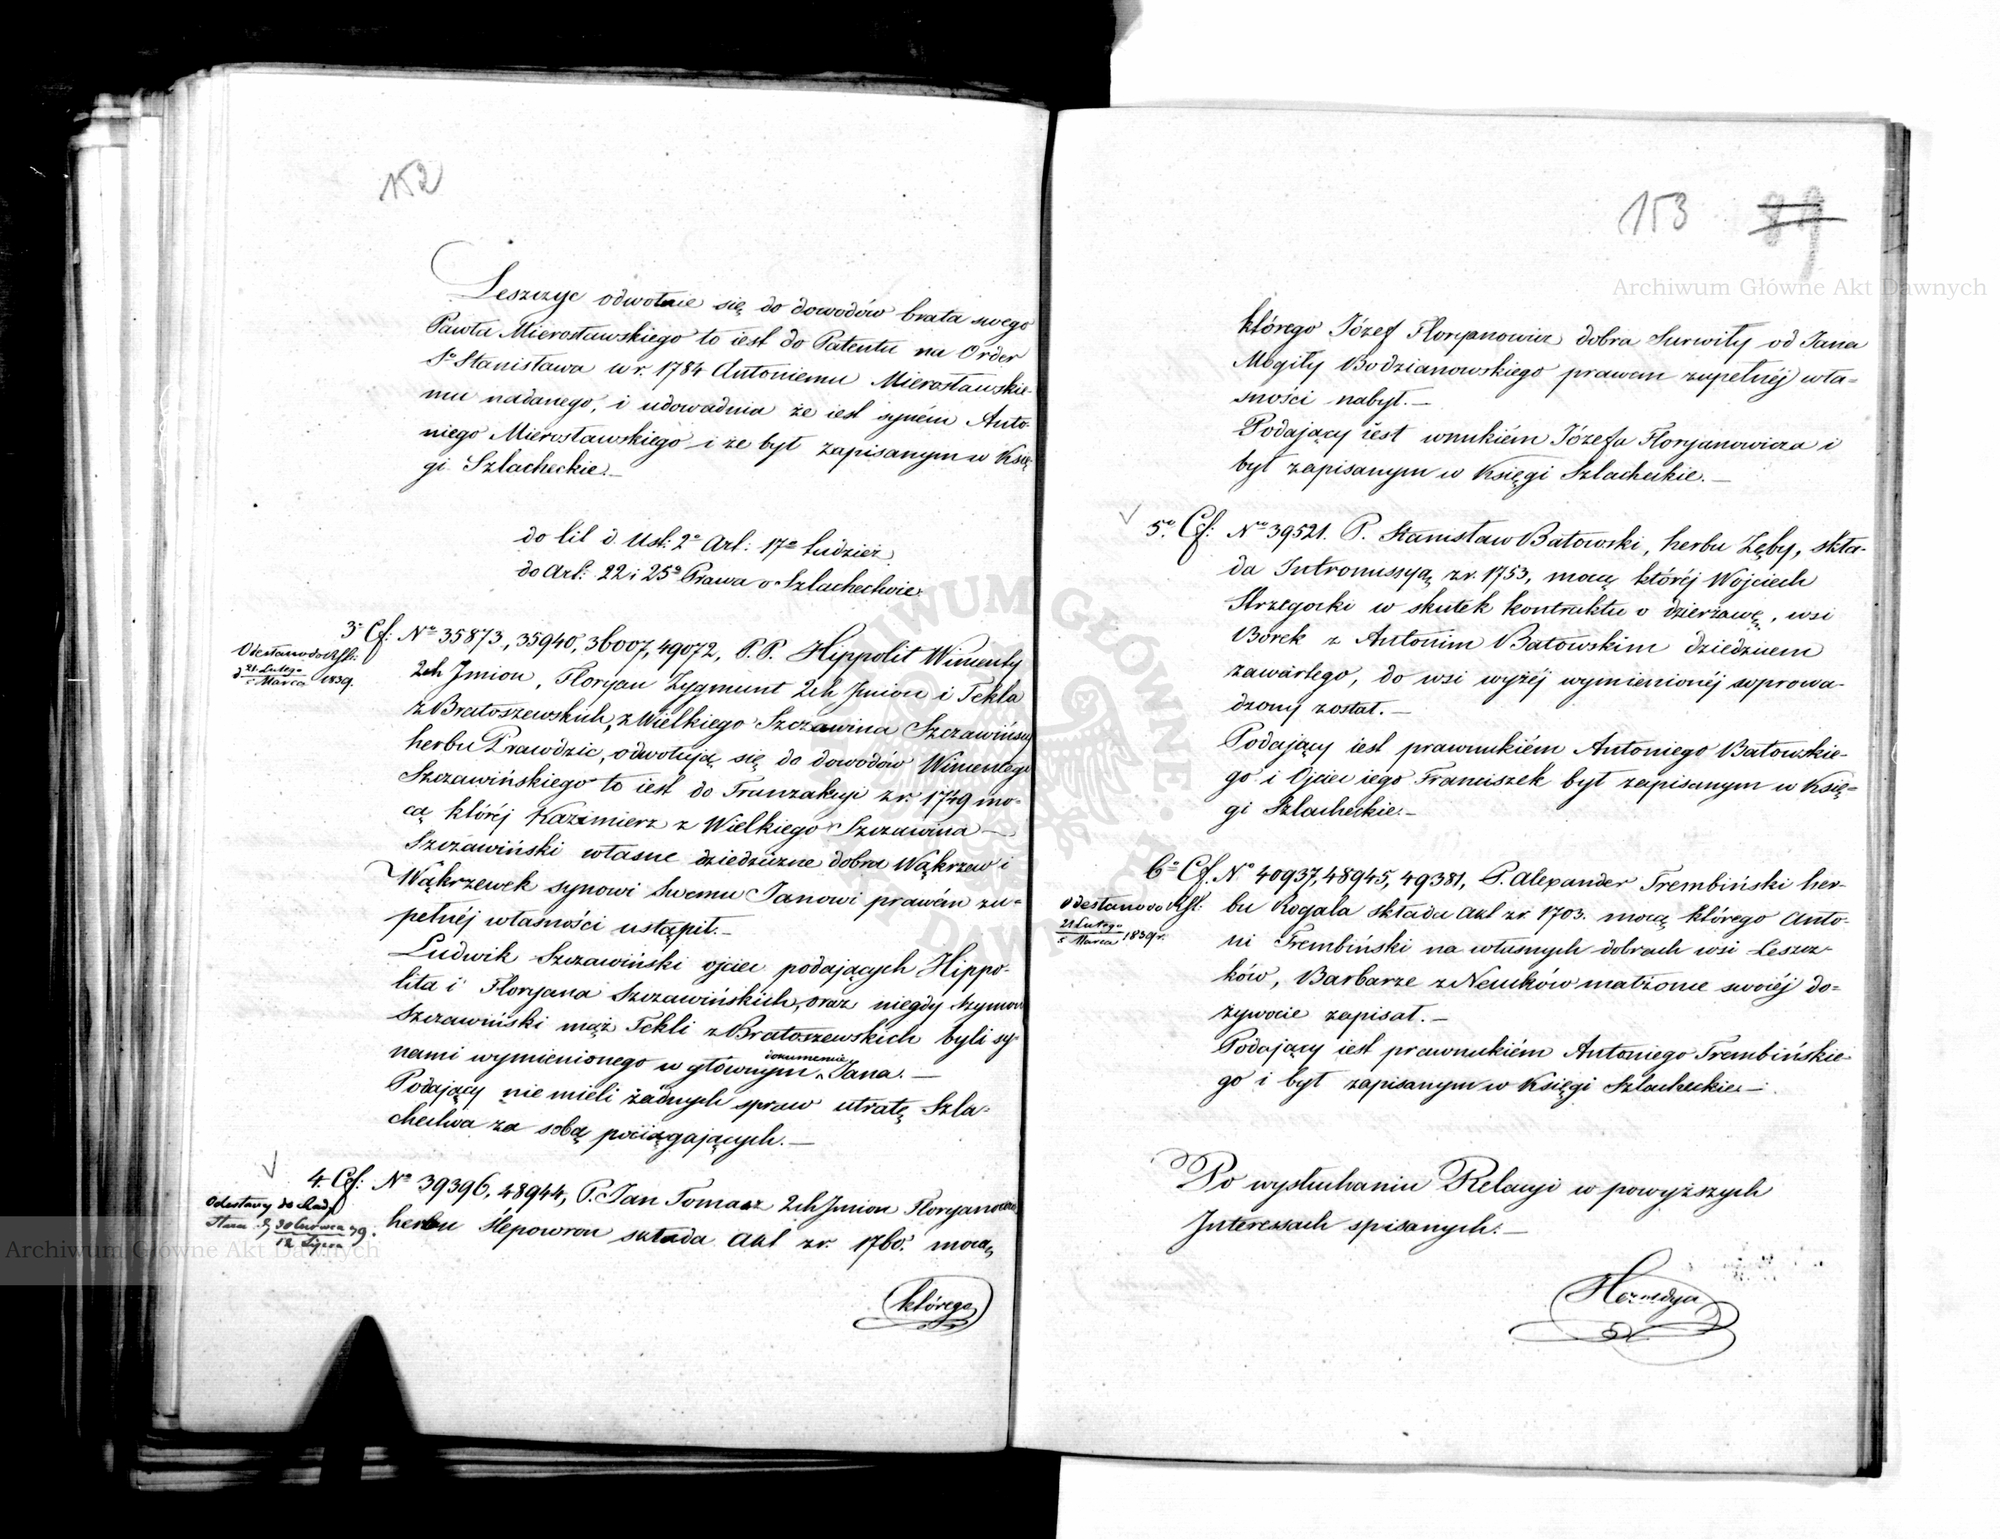 152
Leszczyc odwołuie się do dowodów brata swego
Pawła Mierosławskiego to iest do Patentu na Order
Sº Stanisława w r. 1784 Antoniemu Mierosławskie-
mu nadanego, i udowadnia że iest synem Anto-
niego Mierosławskiego i że był zapisanym w Księ-
gi Szlacheckie.—
do lit d. Ust: 2º Art: 17º tudzież
do Art: 22 i 25º Prawa o Szlachectwie
3º Cf: Nº 35873, 35940, 36007, 49072, P.P. Hippolit Wincenty
Odesłano do
d 21 Lutego
5 Marca 1839.
2ch Jmion, Floryan Zygmunt 2ch Jmion i Tekla
z Bratoszewskich, z Wielkiego Szczawina Szczawińscy
herbu Prawdzic, odwołują się do dowodów Wincentego
Szczawińskiego to iest do Tranzakcyi z r. 1749 mo-
cą któréj Kazimierz z Wielkiego Szczawina —
Szczawiński własne dziedziczne dobra Wąkrzew i
Wąkrzewek synowi swemu Janowi prawém zu-
pełnéj własności ustąpił.—
Ludwik Szczawiński ojciec podających Hippo-
lita i Floryana Szczawińskich, oraz niegdy Szymon
Szczawiński mąż Tekli z Bratoszewskich byli sy-
nami wymienionego w głównym dokumencie Jana.—
Podający nie mieli żadnych spraw utratę Szla-
chectwa za sobą pociągających.—
4. Cf: Nº 39396, 48944, P. Jan Tomasz 2ch Jmion Floryanowicz
Odesłany do Rady
Stanu d 30 Czerwca 39.
12 Lipca
herbu Ślepowron składa Akt z r. 1760. mocą
którego
153 89
Archiwum Główne Akt Dawnych
którego Józef Floryanowicz dobra Surwiły od Jana
Mogiły Bodzianowskiego prawem zupełnéj wła-
sności nabył.—
Podający iest wnukiém Józefa Floryanowicza i
był zapisanym w Księgi Szlacheckie.—
5º Cf: Nº 39521. P. Stanisław Batowski, herbu Zęby, skła-
da Intromissyą z r. 1753, mocą któréj Wojciech
Strzegocki w skutek kontraktu o dzierżawę, wsi
Borek z Antonim Batowskim dziedzicem
zawartego, do wsi wyżéj wymienionéj wprowa-
dzony został.—
Podający iest prawnukiém Antoniego Batowskie-
go i Ojciec iego Franciszek był zapisanym w Księ-
gi Szlacheckie.—
6º Cf. Nº 40937, 48945, 49381, P. Alexander Trembiński her-
Odesłano do
21 Lutego
5 Marca 1839 r.
bu Rogala składa Akt z r. 1703. mocą którego Anto-
ni Trembiński na własnych dobrach wsi Leszcz-
ków, Barbarze z małżonce swoiéj do-
żywocie zapisał.—
Podający iest prawnukiém Antoniego Trembińskie
go i był zapisanym w Księgi Szlacheckie.—
Po wysłuchaniu Relacyi w powyższych
Interessach spisanych.—
Archiwum Główne Akt Dawnych
ARCHIWUM GŁÓWNE AKT DAWNYCH